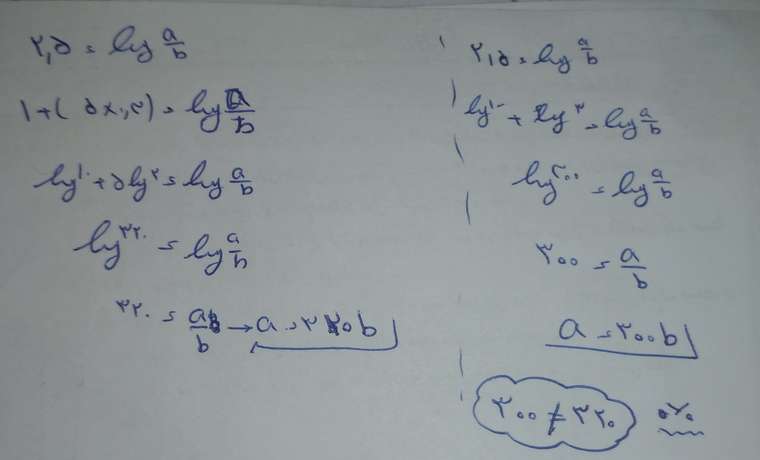 ۲٫۵ = log a/b
۱+( ۵×۰٫۳) = log a/b
log ۱۰ + ۵log ۲ = log a/b
log ۳۲۰ = log a/b
۳۲۰ = a/b → a = ۳۲۰b
۲٫۵ = log a/b
+ log ۳ = log a/b
log ۳۰۰ = log a/b
۳۰۰ = a/b
a = ۳۰۰b
۳۰۰ ≠ ۳۲۰